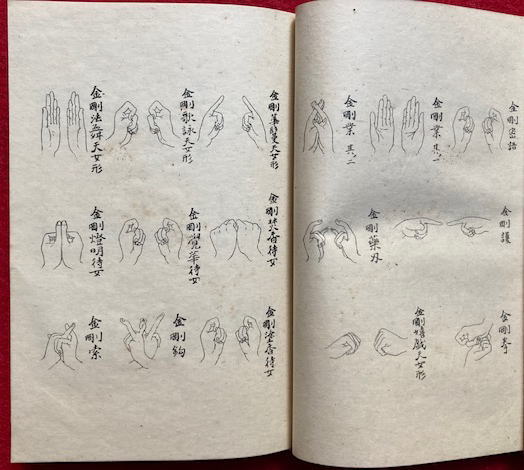 金剛密語
金剛業 其一
金剛業 其二
金剛護
金剛藥叉
金剛拳
金剛嬉戲天女形
金剛華鬘天女形
金剛歌詠天女形
金剛法舞天女形
金剛焚香待女
金剛覺華待女
金剛燈明待女
金剛塗香待女
金剛鈎
金剛索